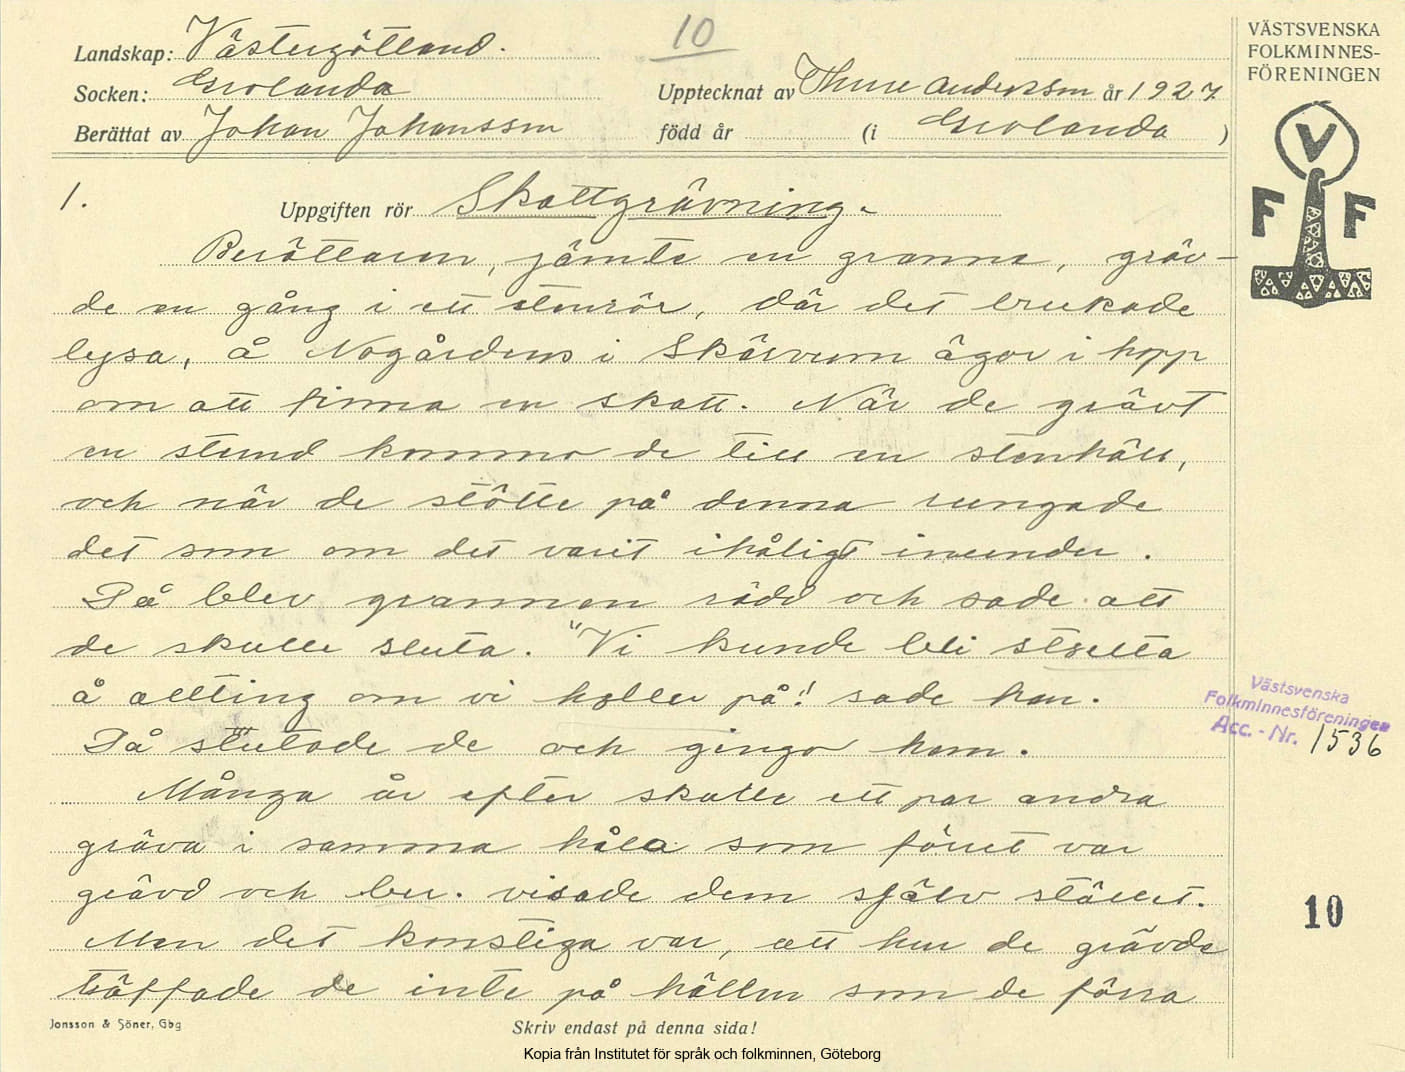 10
Landskap: Västergötland.
Socken: Grolanda
Upptecknat av Thure Andersson år 1927
Berättat av Johan Johansson född år (i Grolanda )
VÄSTSVENSKA
FOLKMINNES-
FÖRENINGEN
V
F F
1.
Uppgiften rör Skattgrävning.
Berättaren, jämte en granne, gräv-
de en gång i ett stenrör, där det brukade
lysa, å Nogårdens i Skärvum ägor i hopp
om att finna en skatt. När de grävt
en stund kommo de till en stenhäll,
och när de stötte på denna rungade
det som om det varit ihåligt inunder.
Då blev grannen rädd och sade att
de skulle sluta. "Vi kunde bli stollta
å allting om vi holler på! sade han.
Då slutade de och gingo hem.
Många år efter skulle ett par andra
gräva i samma håla som förut var
grävd och ber. visade dem själv stället.
Men det konstiga var, att hur de grävde
träffade de inte på hällen som de förra
Västsvenska
Folkminnesföreningen
Acc.-Nr. 1536
10
Jonsson & Söner, Gbg
Skriv endast på denna sida!
Kopia från Institutet för språk och folkminnen, Göteborg